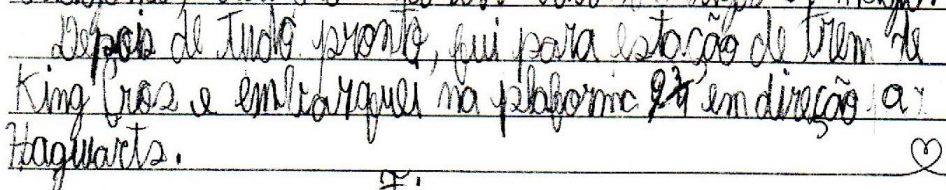 Depois de tudo pronto, fui para estação de trem de
King Cros e embarquei na plaforma em direção a
Hagwarts.